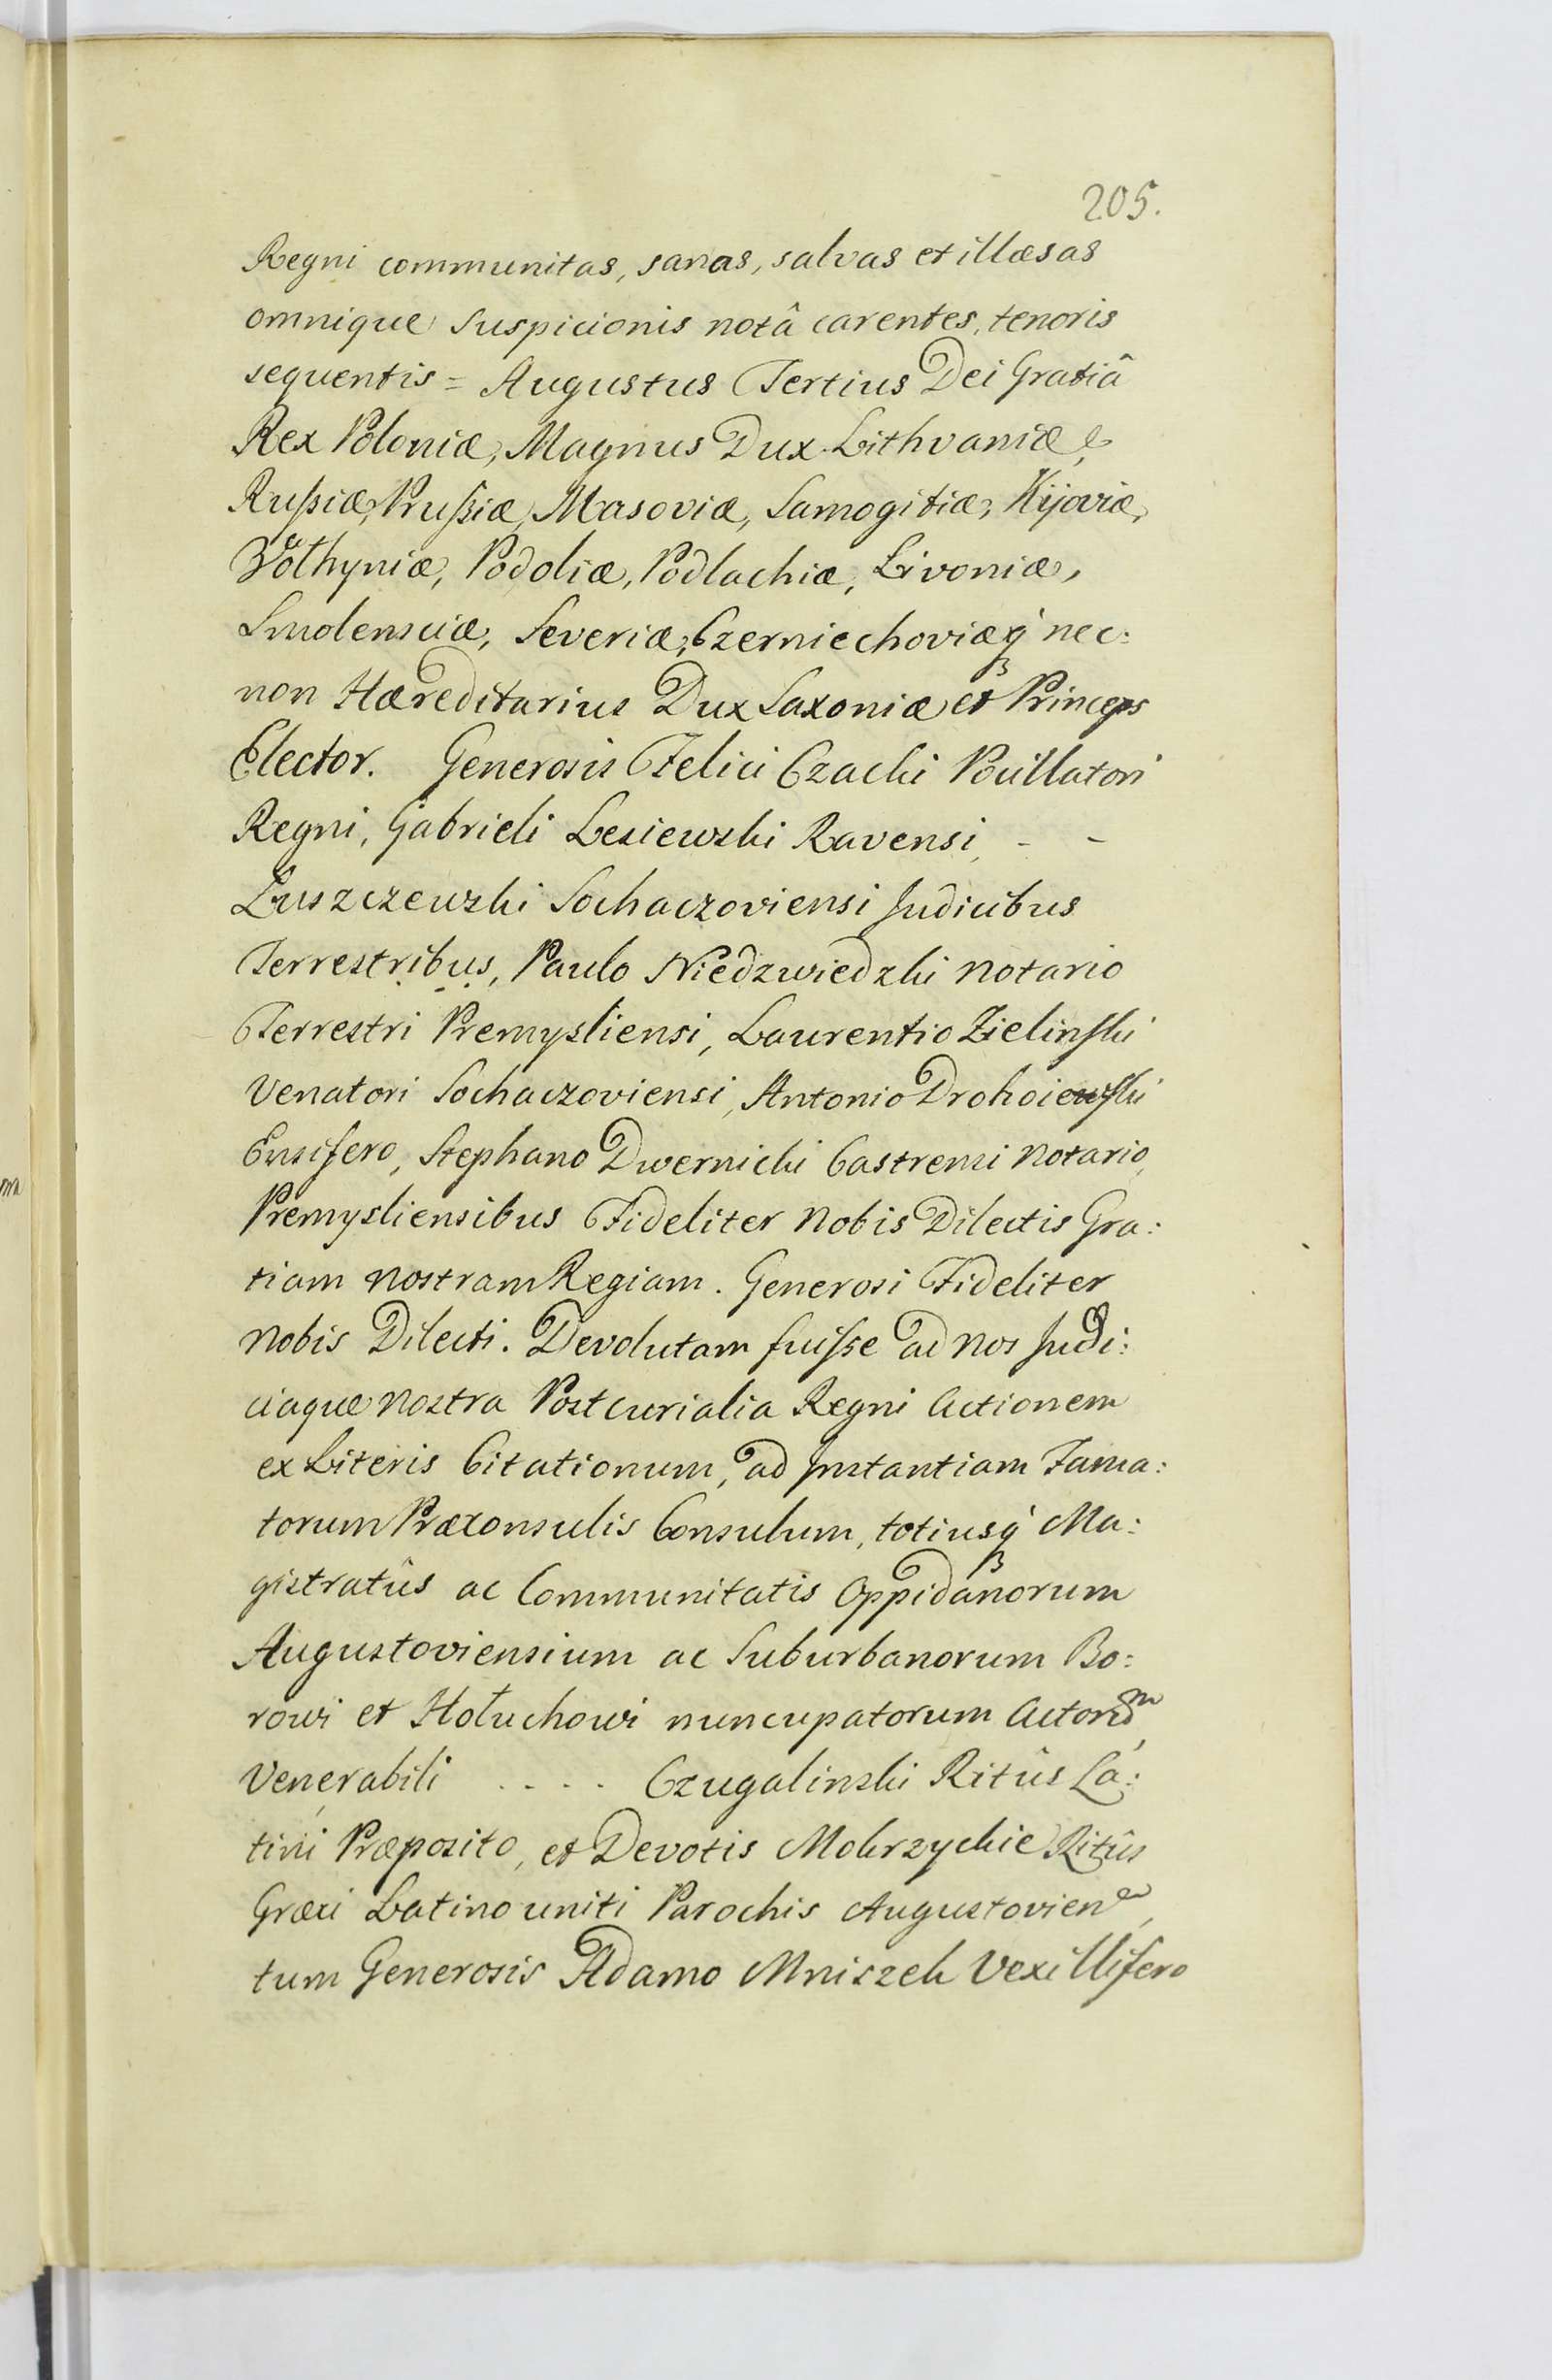 205.
Regni communitas, sanas, salvas et illæsas
omnique suspicionis notâ carentes, tenoris
sequentis = Augustus Tertius Dei Gratiâ
Rex Poloniæ, Magnus Dux Lithvaniæ,
Rußiæ, Prußiæ, Masoviæ, Samogitiæ, Kijoviæ,
Wolhyniæ, Podoliæ, Podlachiæ, Livoniæ,
Smolensciæ, Severiæ, Czerniechoviæq́ nec:
non Hæreditarius Dux Saxoniæ et Princeps
Elector. Generosis Felici Czacki Pocillatori
Regni, Gabrieli Lesiewski Ravensi, - -
Łuszczewski Sochaczoviensi Judicibus
Terrestribus, Paulo Niedzwiedzki Notario
Terrestri Premysliensi, Laurentio Zielinski
Venatori Sochaczoviensi, Antonio Drohoiewski
Ensifero, Stephano Dwernicki Castrensi Notario,
Premysliensibus Fideliter Nobis Dilectis Gra:
tiam Nostram Regiam. Generosi Fideliter
Nobis Dilecti. Devolutam fuiße ad Nos Judi:
ciaque Nostra Postcurialia Regni Actionem
ex Literis Citationum, ad Instantiam Fama:
torum Præconsulis Consulum, totiusq́ Ma:
gistratûs ac Communitatis Oppidanorum
Augustoviensium ac Suburbanorum Bo:
rowi et Hołuchowi nuncupatorum Actorum,
Venerabili .... Czugalinski Ritûs La:
tini Præposito, et Devotis Mokrzyckie Ritûs
Græci Latino uniti Parochis Augustovien,
tum Generosis Adamo Mniszek Vexillifero